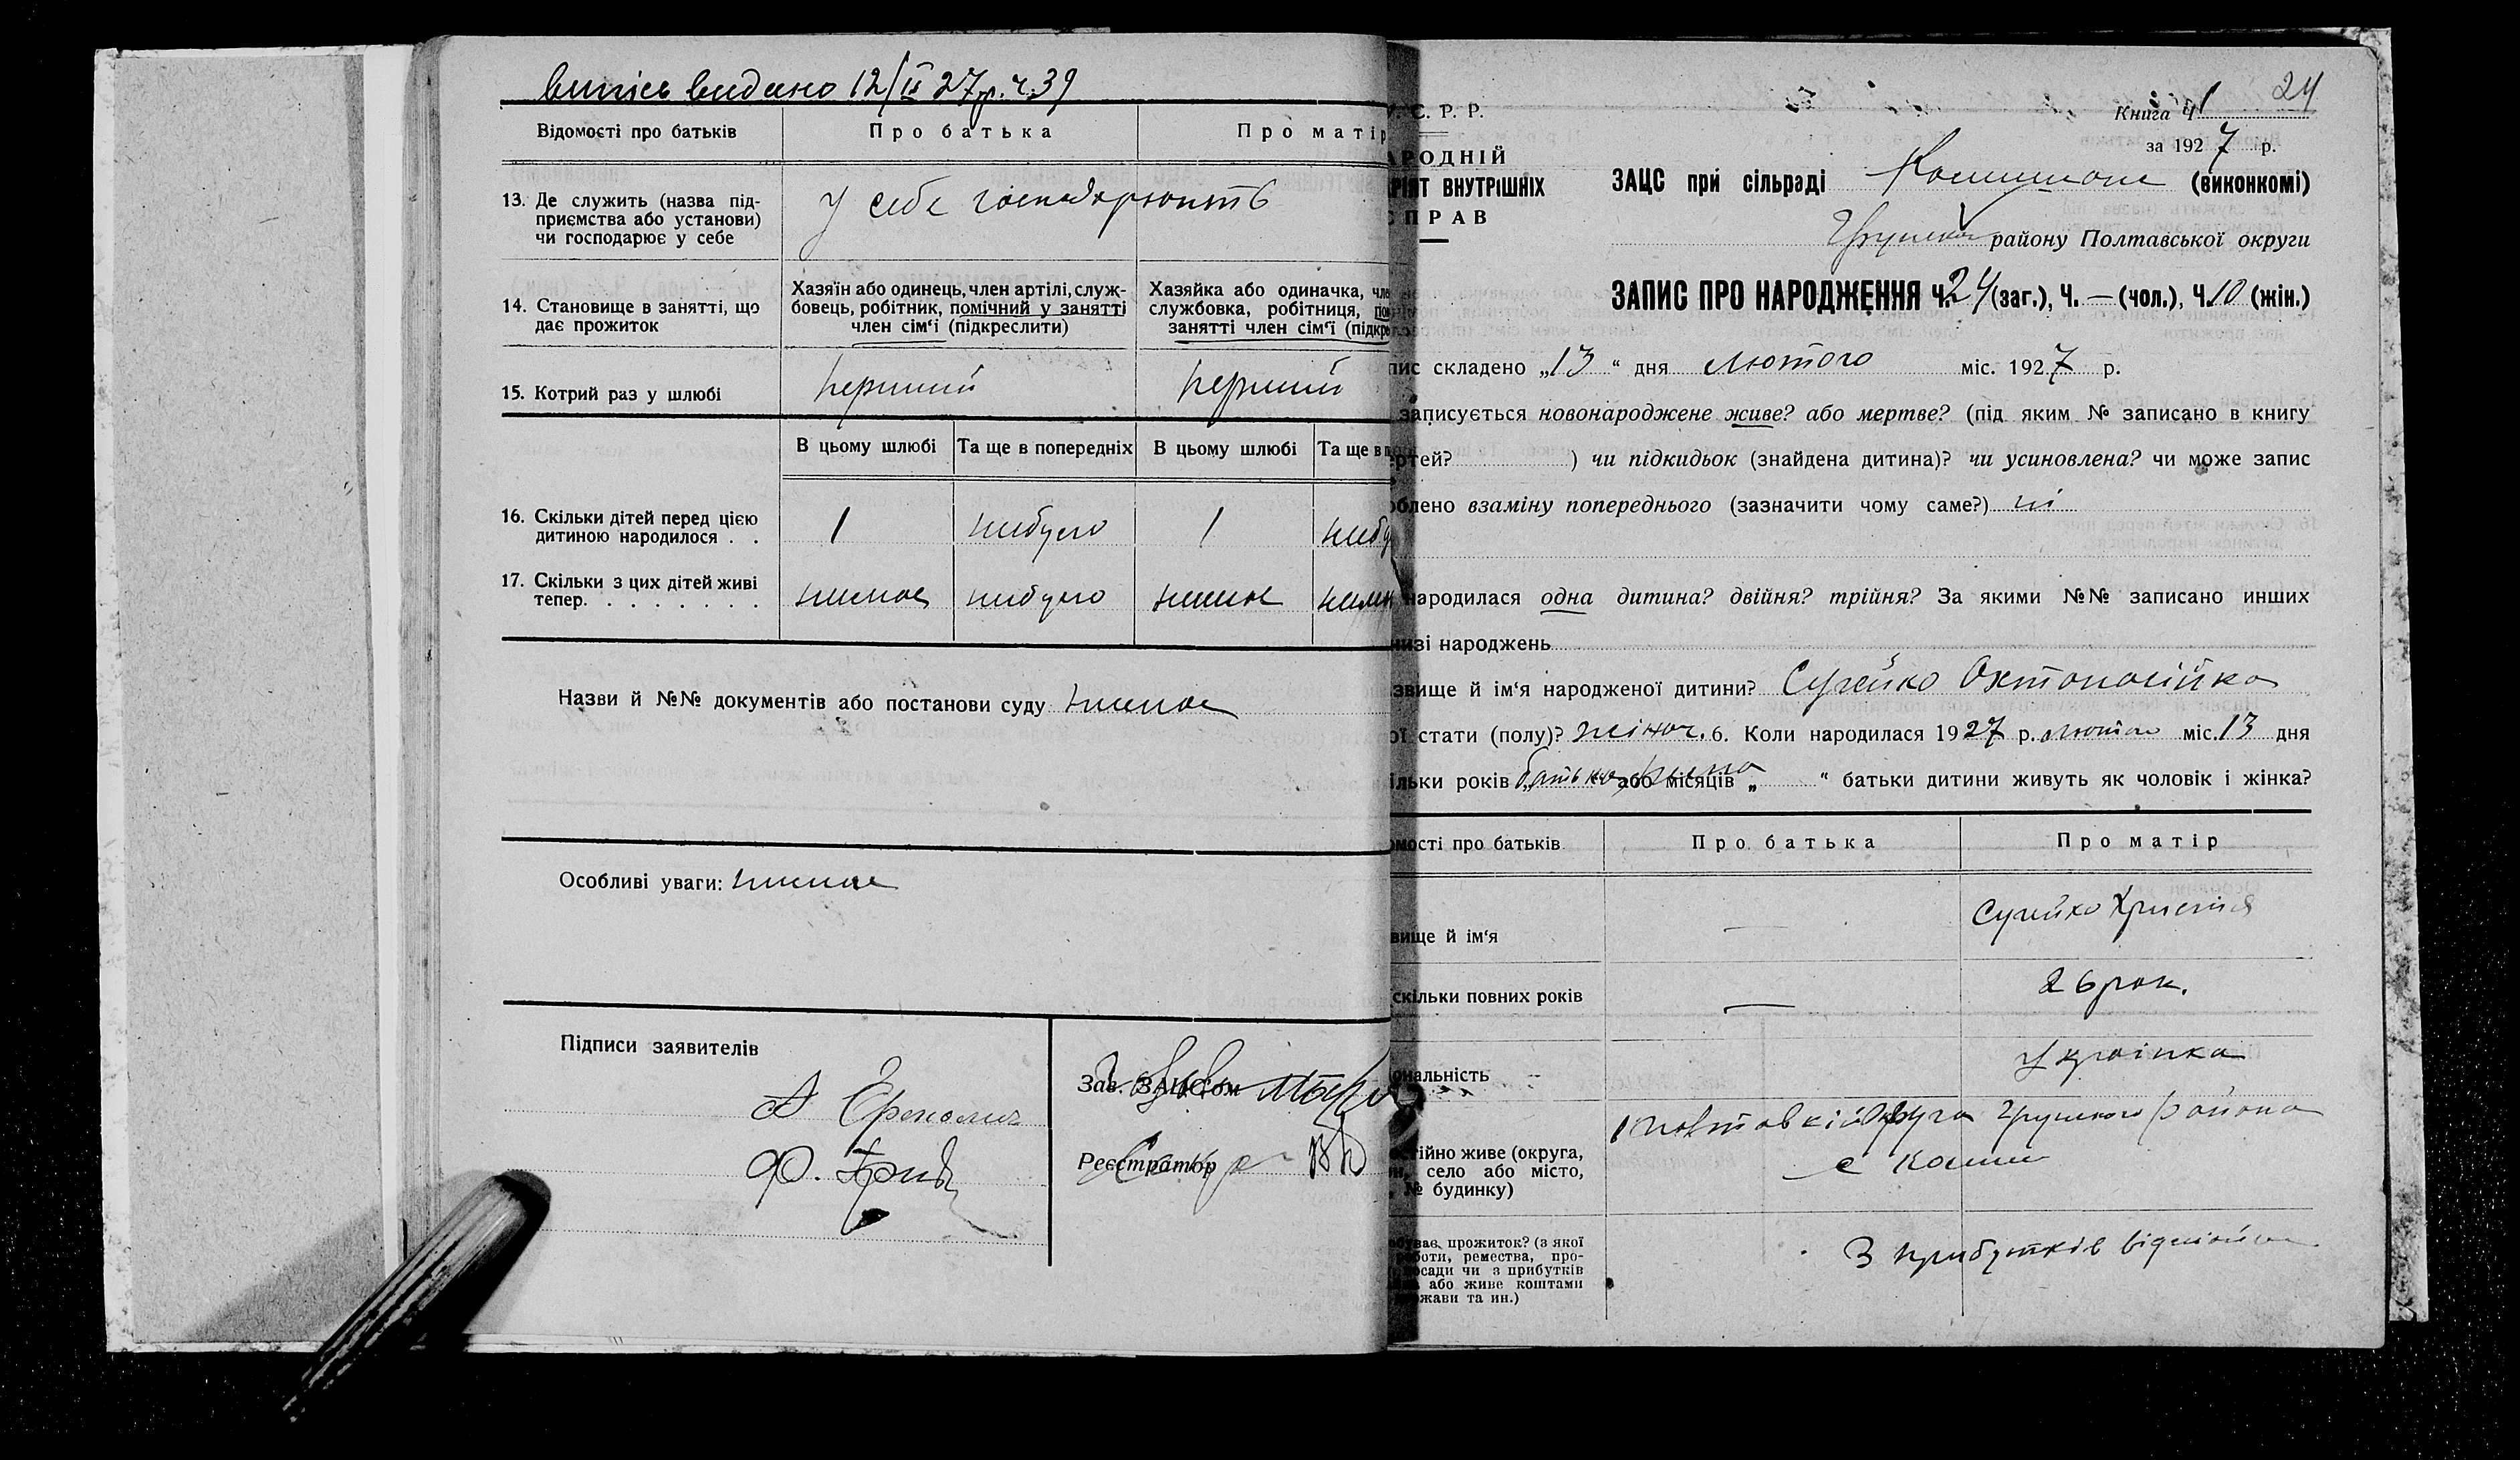 випісь видано 12/II 27р. ч. 39
Відомості про батьків
Про батька
Про матір
13. Де служить (назва під-
приємства або установи)
чи господарює у себе
у себе господарюють
14. Становище в занятті, що
дає прожиток
Хазяїн або одинець, член артілі, служ-
бовець, робітник, помічний у занятті
член сім'ї (підкреслити)
Хазяйка або одиначка, чле
службовка, робітниця, по
занятті член сім'ї (підкре
15. Котрий раз у шлюбі
перший
перший
В цьому шлюбі
Та ще в попередніх
В цьому шлюбі
Та ще в
16. Скільки дітей перед цією
дитиною народилося . .
1
небуло
1
небу
17. Скільки з цих дітей живі
тепер. . . . . . . .
немає
небуло
немає
Назви й №№ документів або постанови суду немає
Особливі уваги: немає
Підписи заявителів
Зав. ЗАЦСом
Реєстратор
24
Книга Ч 1
за 1927 р.
С. Р. Р.
АРОДНІЙ
РІЯТ ВНУТРІШНІХ
СПРАВ
ЗАЦС при сільраді (виконкомі)
району Полтавської округи
ЗАПИС ПРО НАРОДЖЕННЯ Ч. 24 (заг.), Ч. — (чол.), Ч. 10 (жін.)
пис складено „13 “ дня лютого міс. 1927 р.
записується новонароджене живе? або мертве? (під яким № записано в книгу
ертей? ) чи підкидьок (знайдена дитина)? чи усиновлена? чи може запис
облено взаміну попереднього (зазначити чому саме?) ні
народилася одна дитина? двійня? трійня? За якими №№ записано инших
низі народжень
звище й ім'я народженої дитини?
ої стати (полу)? жіноч. 6. Коли народилася 1927 р. лютого міс. 13 дня
ільки років „ батька нема “ або місяців „ “ батьки дитини живуть як чоловік і жінка?
омості про батьків
Про батька
Про матір
вище й ім'я
—
Христія
скільки повних років
—
26 рок.
ональність
Українка
тійно живе (округа,
н, село або місто,
, № будинку)
округа района
с
обуває прожиток? (з якої
роботи, ремества, про-
осади чи з прибутків
або живе коштами
жави та ин.)
З прибутків